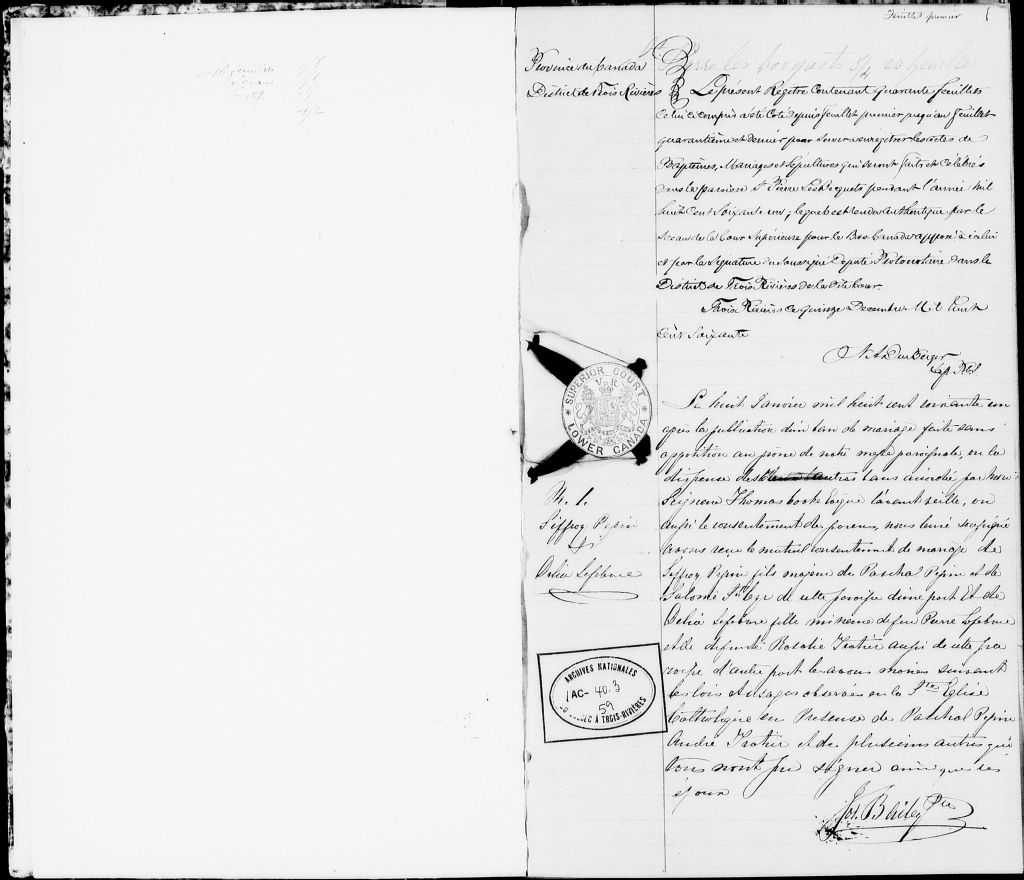 Feuillet premier
1
St Pierre les becquets 5/4 20 feuillets
Province du Canada
District de Trois Rivières
Le présent Registre Contenant quarante feuillets
Celui ci compris a été Coté depuis feuillet premier jusqu'au feuillet
quarantième et dernier pour servir a enregistrer les actes de
Baptêmes, Mariages et Sépultures qui seront faits et célébrés
dans la paroisse St Pierre Les Becquets pendant l'année Mil
huit Cent Soixante un; lequel est rendu authentique par le
Sceau de la Cour Supérieure pour le Bas Canada apposé à icelui
et par la Signature du Soussigné Député Protonotaire dans le
District de Trois Rivières de la dite Cour.
Trois Rivières ce quinze Decembre Mil huit
Cent Soixante
SUPERIOR COURT
V R
LOWER CANADA
Le huit Janvier mil huit cent soixante un
après la publication d'un ban de mariage faite sans
opposition au prone de notre messe paroissiale, vu la
dispense des autres bans accordée par
Seigneur Thomas Cooke Evêque l'avant veille, vu
aussi le consentement de parens, nous curé soussigné
avons reçu le mutuel consentement de mariage de
Seffroy Pepin fils majeur de Paschal Pepin et de
Salomé de cette paroisse d'une part Et de
Delia Lefebvre fille mineure de feu Pierre Lefebvre
et de défunte Rosalie Trotier aussi de cette pa
roisse d'autre part les avons mariés suivant
les lois et usages observés en la Ste Eglise
Catholique en Presense de Paschal Pepin
André Trotier et de plusieurs autres qui
tous n'ont pu signer ainsi que les
époux
Jos. Bailey Ptre
M. 1.
Seffroy Pepin
&
Delia Lefebvre
ARCHIVES NATIONALES
AC- 40.3
59
QUÉBEC À TROIS-RIVIÈRES